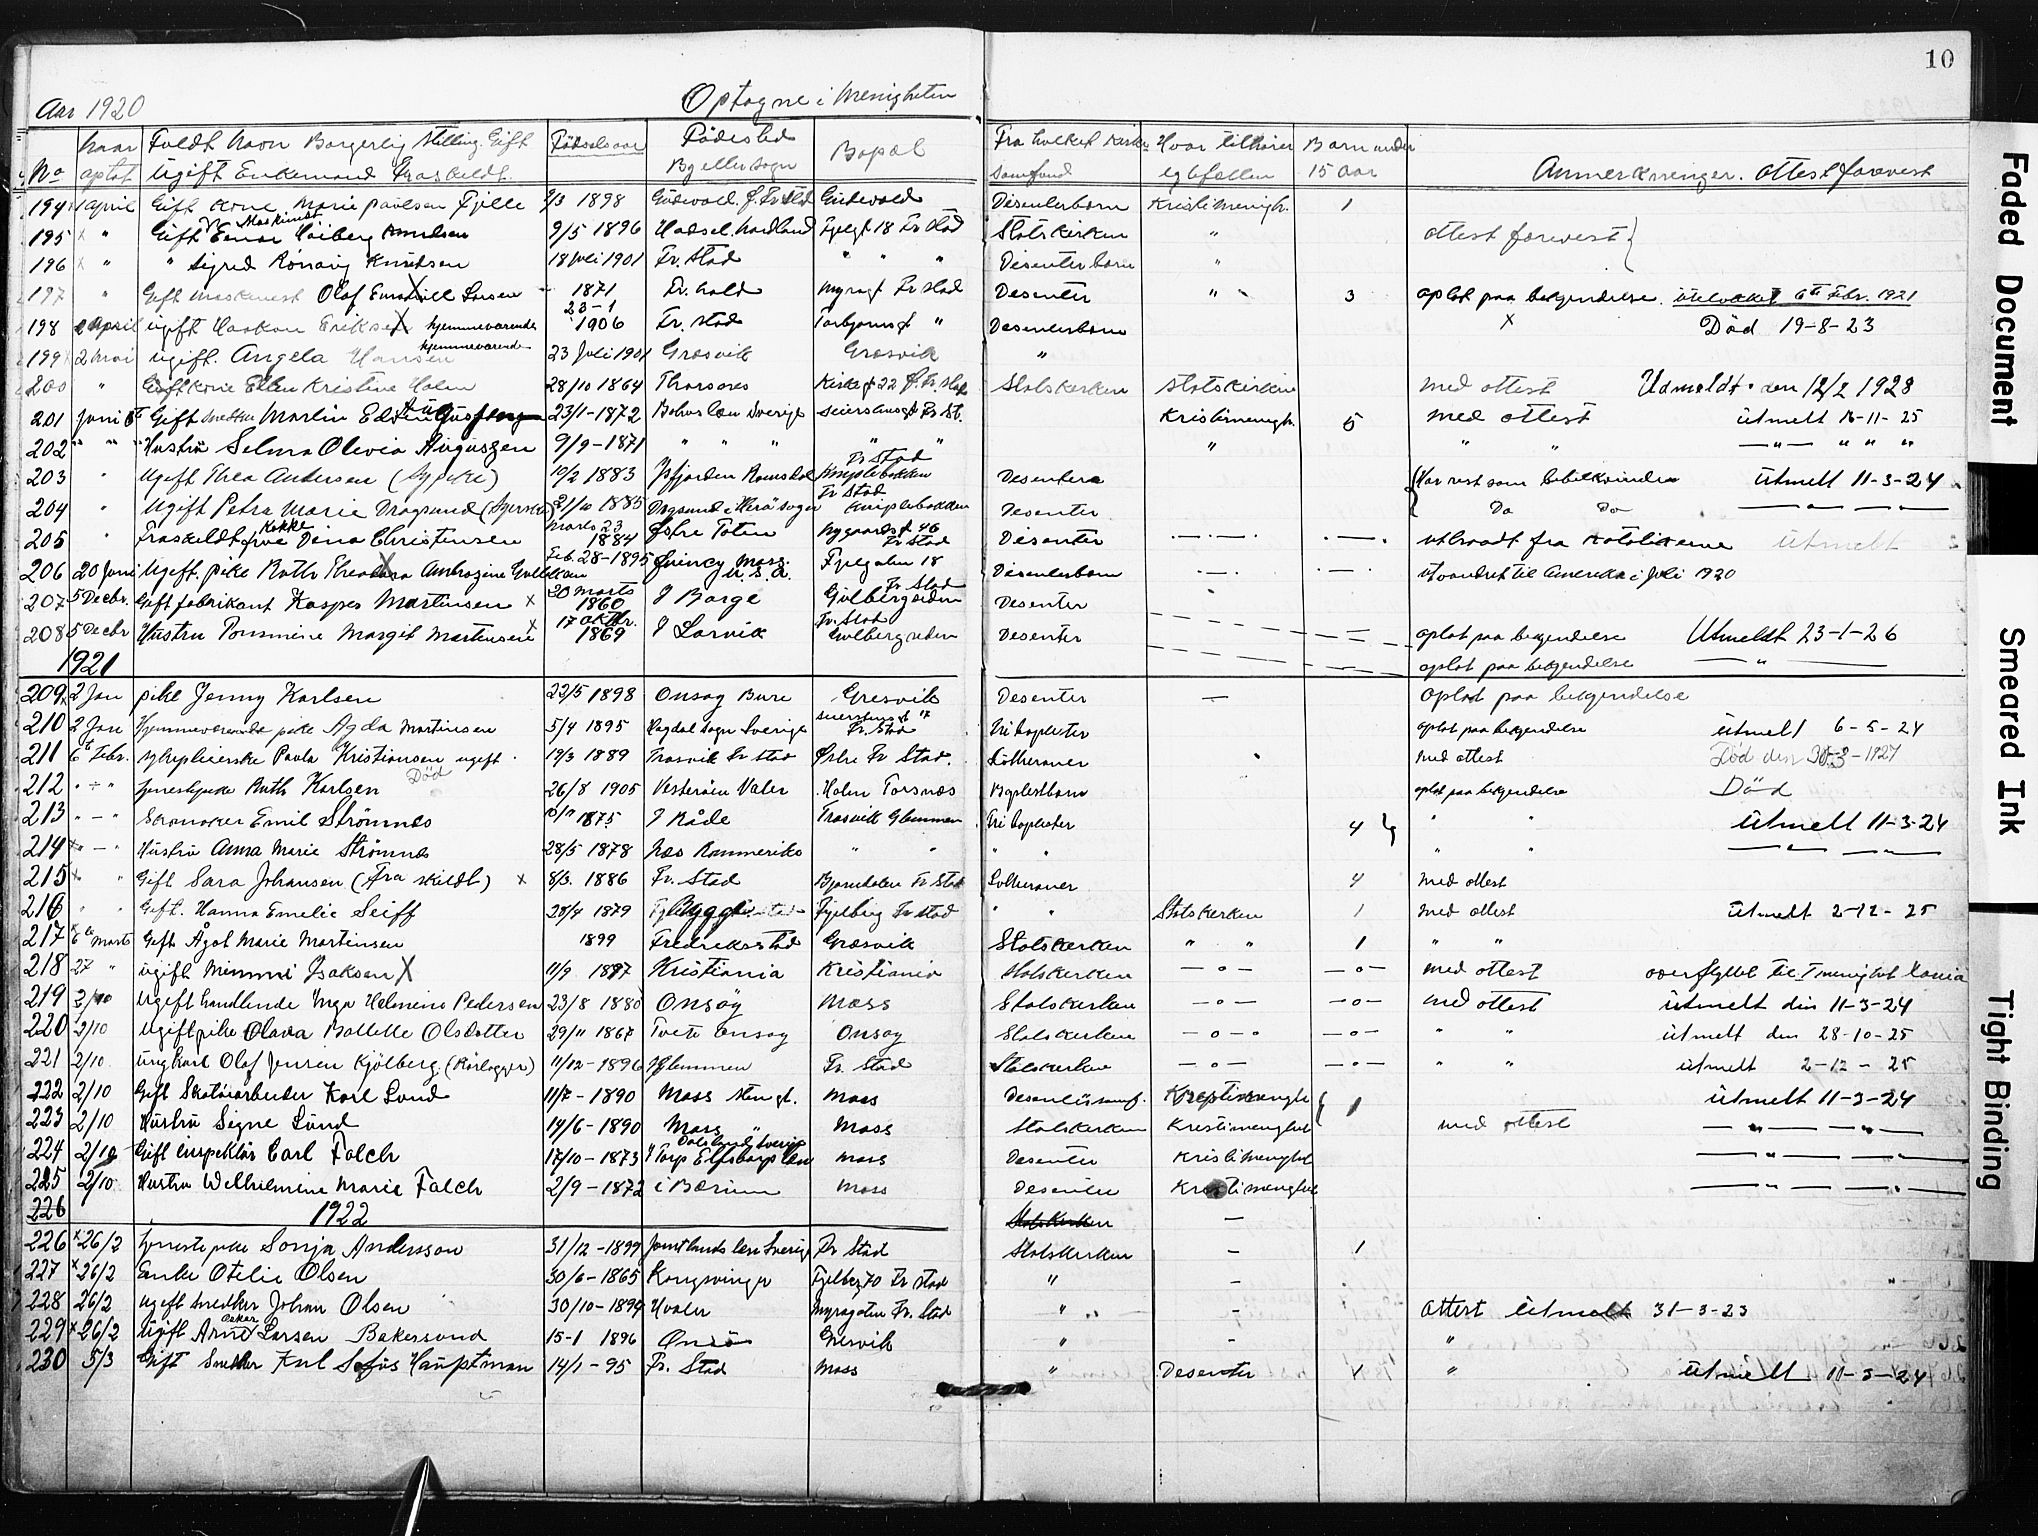 10
Aar 1920 Optagne i Menigheten
No Naar optat Fuldt Navn Borgerlig Stilling. Gift Ugift Enkemand Fraskildt. Fødselsaar Fødested By eller sogn Bopæl Fra hvilket Kirke Samfund Hvor tilhører egtefellen Barn under 15 aar Anmerkninger. Attest forevist
194 1 april Gift Kone Marie Paulsen Fjelle 9/3 1898 Gudevold. f. Fr Stad Gudevold Disenterbarn Kristi menigh. 1
195 x " Gift Maskinist Einar Høiberg Knudsen 9/5 1896 Hadsel. Nordland Fjelgt 18 Fr Stad Statskirken " attest forevist
196 x " " Sigred Rønaug Knudsen 18 Juli 1901 Fr. Stad " " " Disenter barn "
197 " Gift Maskinist Olaf Larsen 1871 Fr. hald Myragt Fr Stad Desenter " 3 optat paa bekjendelse. 6te Febr. 1921
198 April ugift Haakon Eriksen hjemmeværende 23-1 1906 Fr. Stad Torbjørns g " Desenterbarn x Død 19-8-23
199 2 Mai ugift. Angela Hansen hjemmeværende 23 Juli 1901 Græsvik Græsvik "
200 " Gift Kone Ellen Kristine Holm 28/10 1864 Thorsnes Kirkeg 22 Fr. Stad Statskerken Statskirken med attest Udmeldt. den 12/2 1928
201 Juni 6 Gift Snedker Martin Ed 23/1-1872 Bohus læn Sverige Seierstensgt Fr St. Kristi menigh. 5 med attest utmelt 16-11-25
202 " " " Hustru Selma Olivia Auguszen 9/9-1871 " " " " " " " " —"— " " "
203 " Ugift Thea Andersen (Sypike) 10/2 1883 Isfjorden Romsdal Fr Stad Kniplebakken Desentere Har rest som bibelkvinden Utmelt 11-3-24
204 " Ugift Petra Marie Dragsund 21/10 1885 Dragsund i Herø sogn Fr Stad Kniplebakken Desenter Do Do — " — " —
205 " Fraskildt frue Kokke Dina Christensen Marts 23 1884 Østre Toten Nygaardsg 46 Fr Stad Desenter —.—.— —.—. uttraadt fra Katolikerne utmelt
206 20 Juni Ugift. pike Ruth Theodora Ambrozine Gulliksen Feb. 28-1895 Quincy Mass. U.S.A. Fjelgaten 18 Disenterbarn —.—. —.— utvandret til Amerika i Juli 1920
207 5 Decbr. Gift fabrikant Kasper Martinsen x 20 Marts 1860 I Borge Fr Stad Gulbergsiden Desenter
208 5 Decbr Hustru Tommine Margit Martinsen x 17 oktbr. 1869 I Larvik Fr. Stad Gulbergsiden Desenter — optat paa bekjendelse Utmeldt 23-1-26
1921 optat paa bekjendelse — " —
209 2 Jan pike Jenny Karlsen 22/5 1898 Onsøy Bure Gresvik Desenter — Optat paa bekjendelse
210 2 Jan Hjemmeværende pike Agda Martinsen 5/4 1895 Sogn Sverige Seierstensgt 17 Fr. Stad Fri baptister optat paa bekjendelse utmelt 6-5-24
211 6te Febr. Sykepleierske Paula Kristiansen ugift 19/3 1889 Trosvik Fr Stad Østre Fr Stad. Lutheraner med attest Død den 30-3-1927
212 " ÷ " tjenestpike Ruth Karlsen Død 26/8 1905 Vesterøien Valer Holm Torsnes Baptistbarn optat paa bekjendelse Død
213 " – " Skomaker Emil Strømnes 1875 I Råde Trosvik Glemmen Fri baptister 4 " " utmelt 11-3-24
214 x " – " Hustru Anna Marie Strømnes 28/5 1878 Næs Rommerike " " " " " " — " — " —
215 x " Gift Sara Johansen (Fraskildt) x 8/3. 1886 Fr. Stad Bjørndalen Fr Stad Lutheraner 4 med attest
216 " " Gift. Hanna Emelie Seiff 28/4 1879 Fjelberg Fr Stad " " Statskerken 1 med attest utmelt 2-12-25
217 x 6te Marts Gift Ågot Marie Martinsen 1899 Fredriksstad Græsvik Statskerken " " 1 " "
218 27 " ugift Mimmi Isaksen X 11/9 1897 Kristiania Kristiania Statskerken —o— —o— med attest overflyttet til menighet Xania
219 2/10 Ugift handlende Inga Helmine Pedersen 23/8 1880 Onsøy Moss Statskerken —o— —o— med attest utmelt din 11-3-24
220 2/10 Ugift pike Olava Mallette Olsdatter 29/11 1867 Tvete Onsøy Onsøy Statskerken —o— —o— " " utmelt den 28-10-25
221 2/10 ungkarl Olaf Jensen Kjølberg (Rørlægger) 11/12-1896 Glemmen Fr. Stad Statskerken —o— —o— " " utmelt 2-12-25
222 2/10 Gift Skotøiarbeider Karl Lund 11/7-1890 Moss Moss Desentersamf. Kristi menighe 1 utmelt 11-3-24
223 2/10 Hustru Signe Lund 14/6-1890 Moss " Moss Statskerken Kristi menighet med attest — " — " —
224 2/10 Gift inspektør Carl Falch 17/10-1873 Dalsland Sverige I Torp Elfsborgs læn Moss Desenter Kristi menighet — " — " —
225 2/10 Hustru Welhelmine Marie Falch 2/9-1872 i Bærum Moss Desenter Kristi menighet — " — " —
226 1922 Statskerken —
226 x 26/2 tjenestepike Sonja Andersson 31/12-1899 Jemtlands læn Sverige Fr Stad Statskerken — 1
227 x 26/2 Enke Otelie Olsen 30/6-1865 Kongsvinger Fjelbg 70 Fr Stad " —
228 26/2 ugift snedker Johan Olsen 30/10-1899 Hvaler Myragaten Fr. Stad " — Attest utmelt 31-3-23
229 x 26/2 Ugift Arne Oskar Larsen Bakersund 15-1 1896 Onsø Gresvik " — "
230 5/3 Gift Snedker Karl Sofus Hauptman 14/1-95 Fr. Stad Moss " Desenter " utmelt 11-3-24
Faded Document
Smeared Ink
Tight Binding